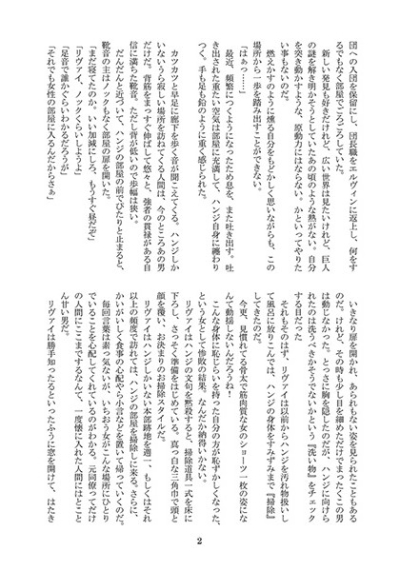 団への入団を保留にし、団長職をエルヴィンに返上し、何をす
るでもなく部屋でごろごろしていた。
新しい発見も好きだけれど、広い世界は見たいけれど、巨人
の謎を解き明かそうとしていたあの頃のような熱がない。自分
を突き動かすような、原動力にはならない。かといってやりた
い事もないのだ。
燃えかすのように燻る自分をもどかしく思いながらも、この
場所から一歩を踏み出すことができない。
「はぁっ……」
最近、頻繁につくようになったため息を、また吐き出す。吐
き出された重たい空気は部屋に充満して、ハンジ自身に纏わり
つく。手も足も鉛のように重く感じられた。
カツカツと早足に廊下を歩く音が聞こえてくる。ハンジしか
いないうら寂しい場所を訪ねてくる人間は、今のところあの男
だけだ。背筋をまっすぐ伸ばして悠々と、強者の貫禄がある自
信に満ちた靴音。ただし背が低いので歩幅は狭い。
だんだんと近づいて、ハンジの部屋の前でぴたりと止まると、
靴音の主はノックもなく部屋の扉を開いた。
「まだ寝てたのか。いい加減にしろ、もうすぐ昼だぞ」
「リヴァイ、ノックくらいしようよ」
「足音で誰かぐらいわかるだろうが」
「それでも女性の部屋に入るんだからさぁ」
いきなり扉を開かれ、あられもない姿を見られたこともある
のだ。けれど、その時も少し目を細めただけでまったくこの男
は動じなかった。とっさに胸を隠したのだが、ハンジに向けら
れたのは洗うべきかそうでないかという『洗い物』をチェック
する目だった
それもそのはず、リヴァイは以前からハンジを汚れ物扱いし
て風呂に放りこんでは、ハンジの身体をすみずみまで『掃除』
してきたのだ。
今更、見慣れてる骨太で筋肉質な女のショーツ一枚の姿にな
んて動揺しないんだろうね！
こんな身体に恥じらいを持った自分の方が恥ずかしくなった。
という女として惨敗の結果、なんだか納得いかない。
リヴァイはハンジの文句を黙殺すると、掃除道具一式を床に
下ろし、さっそく準備をはじめている。真っ白な三角巾で頭と
顔を覆い、お決まりのお掃除スタイルだ。
リヴァイはハンジしかいない本部跡地を週一、もしくはそれ
以上の頻度で訪れては、ハンジの部屋を掃除しに来る。さらに、
かいがいしく食事の心配やら小言などを置いて帰っていくのだ。
毎回言葉は素っ気ないが、いちおう女がこんな場所にひとり
でいることを心配してくれているのがわかる。元同僚ってだけ
の人間にここまでするなんて、一度懐に入れた人間にはとこと
ん甘い男だ。
リヴァイは勝手知ったるといったふうに窓を開けて、はたき
2